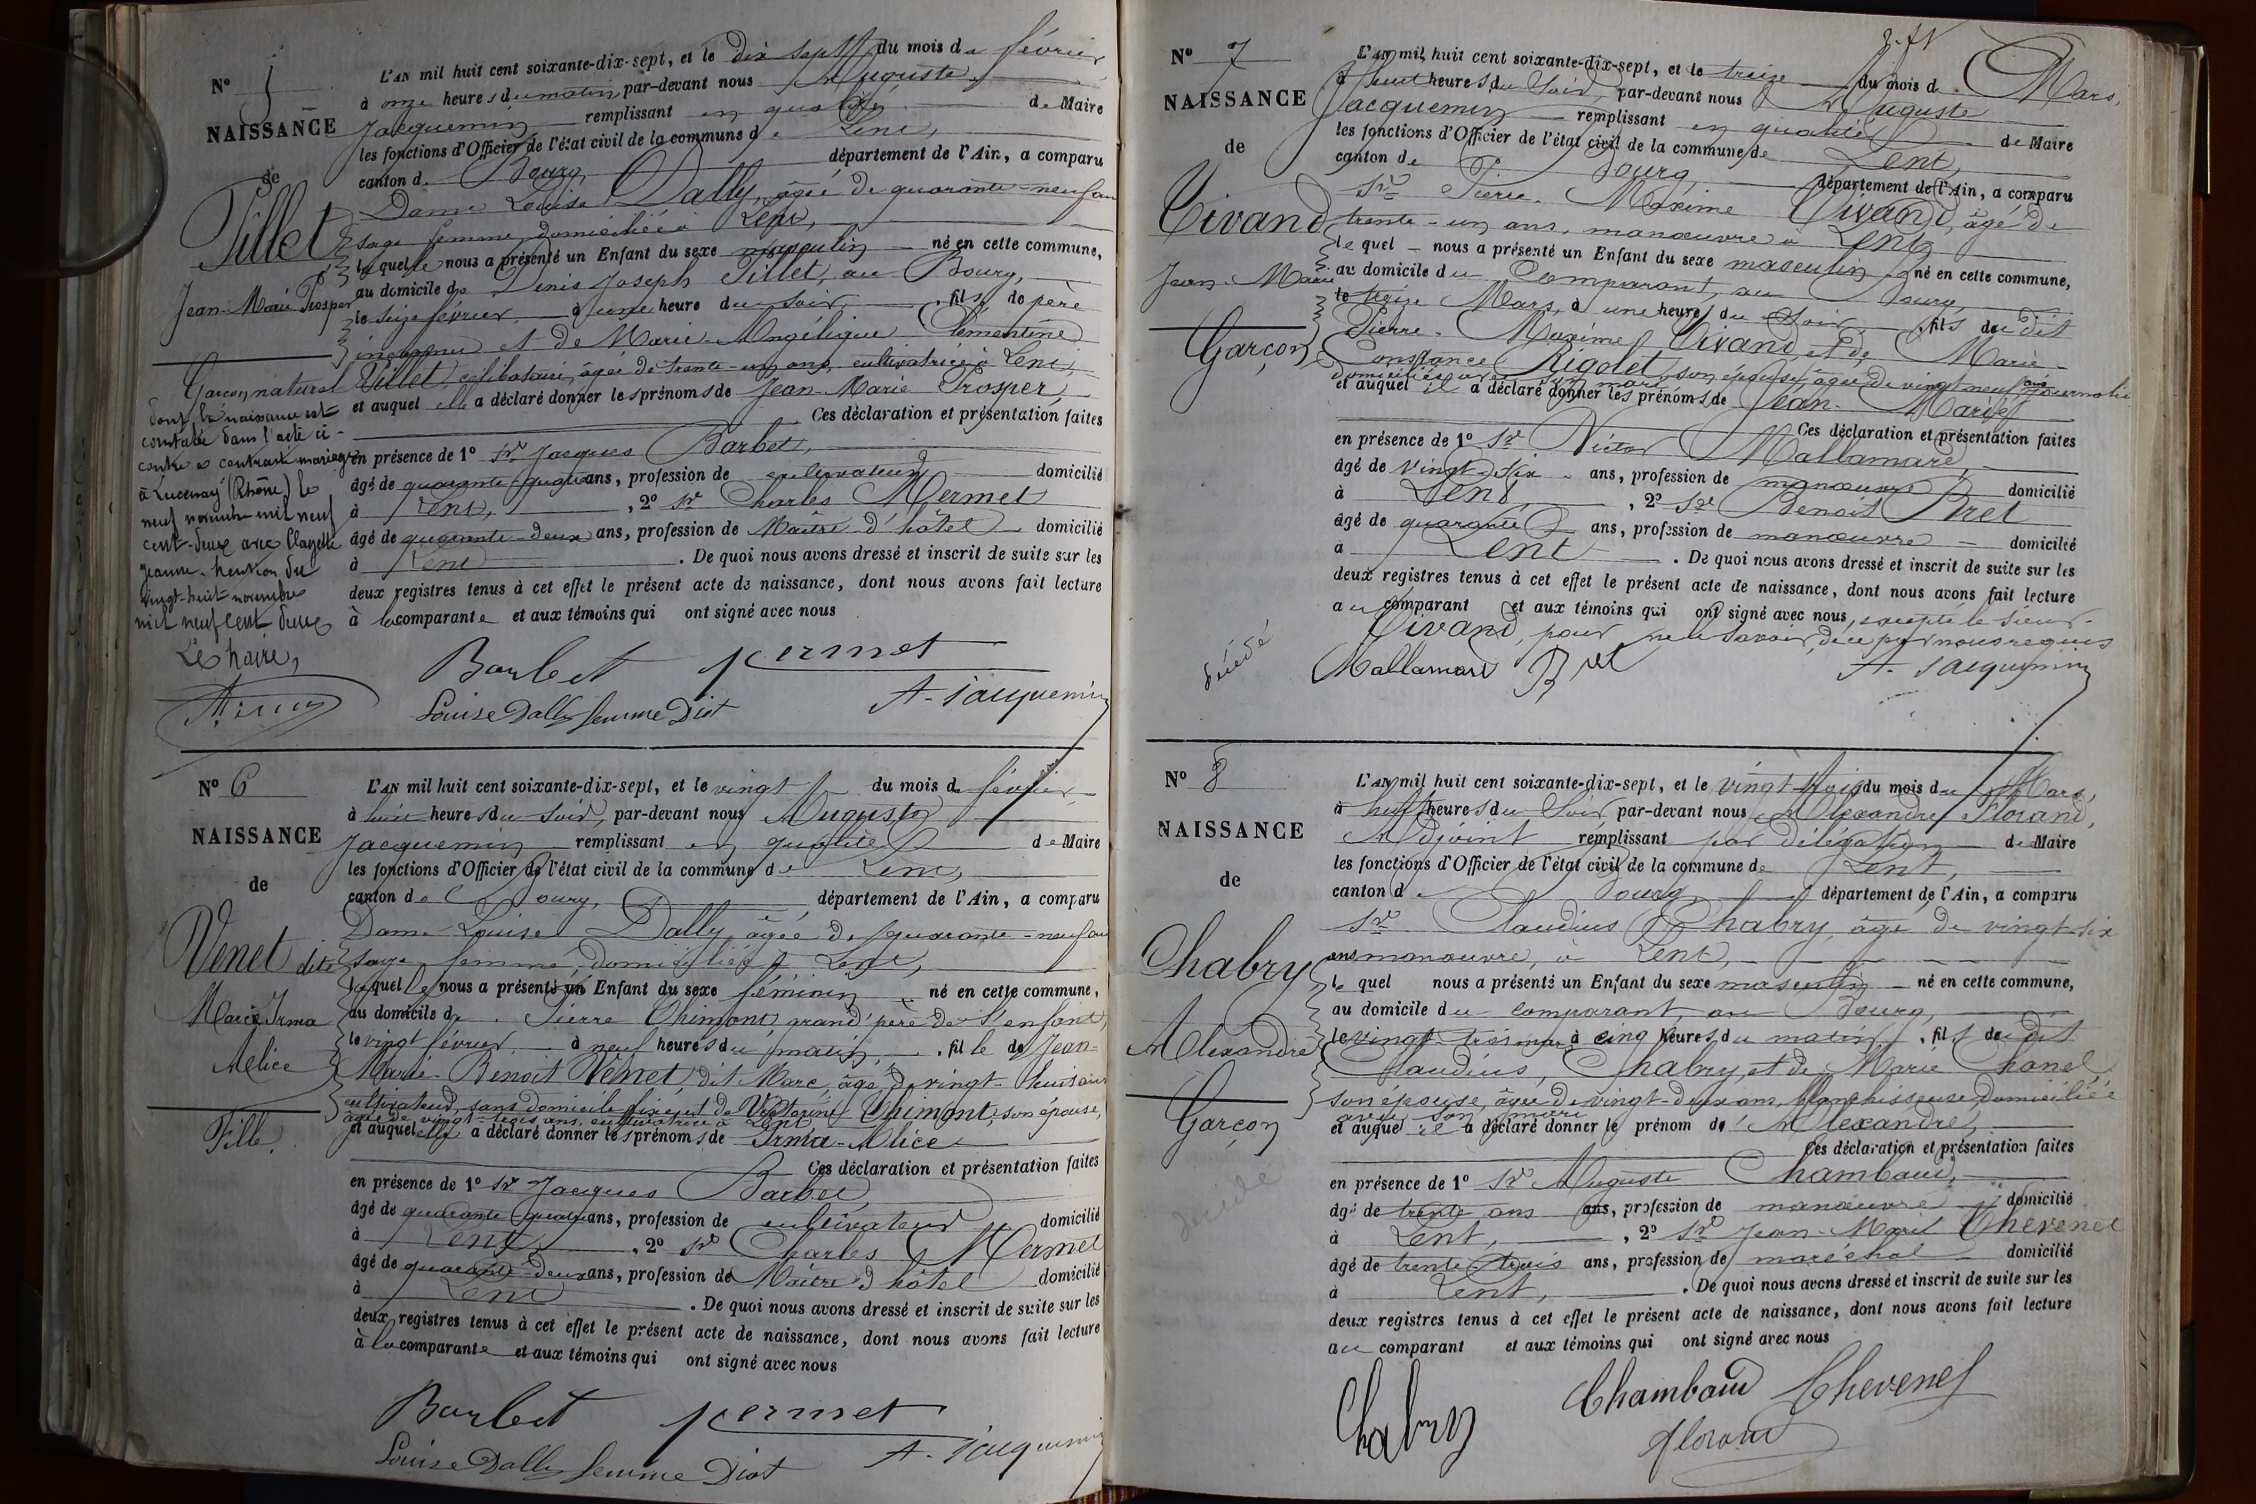 Nº 5
NAISSANCE
de
Tillet
Jean-Marie Prosper
Garçon naturel
dont la naissance est
constatée dans l'acte ci-
contre a contracté mariage
à Lucenay (Rhône) le
neuf novembre mil neuf
cent-deux avec Clayette
Jeanne.
vingt-huit novembre
mil neuf cent deux
Le Maire,
L'AN mil huit cent soixante-dix-sept, et le dix sept du mois de février
à onze heures du matin par-devant nous Auguste
Jacquemin remplissant en qualité de Maire
les fonctions d'Officier de l'état civil de la commune de Lent,
canton de Bourg, département de l'Ain, a comparu
Dame Louise Dally, âgée de quarante-neuf ans
sage femme domiciliée à Lent,
laquelle nous a présenté un Enfant du sexe masculin né en cette commune,
au domicile de Denis Joseph Tillet, au Bourg,
le seize février à une heure du soir, fils de père
inconnu et de Marie-Angélique Clémentine
Tillet, célibataire, âgée de trente-un ans, cultivatrice à Lent,
et auquel elle a déclaré donner les prénoms de Jean-Marie Prosper,
Ces déclaration et présentation faites
en présence de 1º Sr Jacques Barbet,
âgé de quarante quatre ans, profession de cultivateur domicilié
à Lent, , 2º Sr Charles Mermet
âgé de quarante-deux ans, profession de Maître d'hôtel domicilié
à Lent . De quoi nous avons dressé et inscrit de suite sur les
deux registres tenus à cet effet le présent acte de naissance, dont nous avons fait lecture
à la comparante et aux témoins qui ont signé avec nous
Barbet Mermet
Louise Dally femme Diot A. Jacquemin
Nº 6
NAISSANCE
de
Venet dite
Marie Irma
Alice
Fille.
L'AN mil huit cent soixante-dix-sept, et le vingt du mois de février
à huit heures du soir, par-devant nous Auguste
Jacquemin remplissant en qualité de Maire
les fonctions d'Officier de l'état civil de la commune de Lent,
canton de Bourg, département de l'Ain, a comparu
Dame Louise Dally âgée de quarante-neuf ans
sage femme, domiciliée à Lent,
laquelle nous a présenté un Enfant du sexe féminin né en cette commune,
au domicile de Pierre Chimont grand'père de l'enfant,
le vingt février à neuf heures du matin, fille de Jean-
Marie-Benoit Venet, dit Marc, âgé de vingt-huit ans
cultivateur, sans domicile fixe, et de Victorine Chimont, son épouse,
âgée de vingt-trois ans, cultivatrice à Lent,
et auquel elle a déclaré donner les prénoms de Irma-Alice
Ces déclaration et présentation faites
en présence de 1º Sr Jacques Barbet
âgé de quarante quatre ans, profession de cultivateur domicilié
à Lent , 2º Sr Charles Mermet
âgé de quarante-deux ans, profession de Maître d'hôtel domicilié
à Lent . De quoi nous avons dressé et inscrit de suite sur les
deux registres tenus à cet effet le présent acte de naissance, dont nous avons fait lecture
à la comparante et aux témoins qui ont signé avec nous
Barbet Mermet
Louise Dally femme Diot A. Jacquemin
Nº 7
NAISSANCE
de
Vivand
Jean-Marie
Garçon
décédé
L'AN mil huit cent soixante-dix-sept, et le treize du mois de Mars,
à huit heures du soir, par-devant nous Auguste
Jacquemin remplissant en qualité de Maire
les fonctions d'Officier de l'état civil de la commune de Lent,
canton de Bourg département de l'Ain, a comparu
Sr Pierre-Maxime Vivand, âgé de
trente-un ans, manœuvre à Lent,
lequel nous a présenté un Enfant du sexe masculin né en cette commune,
au domicile du comparant, au Bourg,
le treize Mars, à une heure du soir fils du dit
Pierre-Maxime Vivand, et de Marie-
Constance Rigolet, son épouse, âgée de vingt-neuf ans, journalière
domiciliée avec son mari
et auquel il a déclaré donner les prénoms de Jean-Marie
Ces déclaration et présentation faites
en présence de 1º Sr Victor Mallamard,
âgé de vingt-six ans, profession de manœuvre domicilié
à Lent , 2º Sr Benoit Bret
âgé de quarante ans, profession de manœuvre domicilié
à Lent . De quoi nous avons dressé et inscrit de suite sur les
deux registres tenus à cet effet le présent acte de naissance, dont nous avons fait lecture
au comparant et aux témoins qui ont signé avec nous, excepté le sieur
Vivand, pour ne le savoir, de ce par nous requis
Mallamard Bret A. Jacquemin
Nº 8
NAISSANCE
de
Chabry
Alexandre
Garçon
décédé
L'AN mil huit cent soixante-dix-sept, et le vingt-trois du mois de Mars,
à huit heures du soir, par-devant nous Alexandre Florand,
Adjoint remplissant par délégation de Maire
les fonctions d'Officier de l'état civil de la commune de Lent,
canton de Bourg, département de l'Ain, a comparu
Sr Claudius Chabry, âgé de vingt-six
ans manœuvre, à Lent,
lequel nous a présenté un Enfant du sexe masculin né en cette commune,
au domicile du comparant, au Bourg,
le vingt-trois mars à cinq heures du matin, fils du dit
Claudius Chabry, et de Marie Chanel
son épouse, âgée de vingt-deux ans, blanchisseuse, domiciliée
avec son mari
et auquel il a déclaré donner le prénom de Alexandre,
Ces déclaration et présentation faites
en présence de 1º Sr Auguste Chambaud,
âgé de trente ans ans, profession de manœuvre domicilié
à Lent, , 2º Sr Jean-Marie Chevenet
âgé de trente-trois ans, profession de maréchal domicilié
à Lent, . De quoi nous avons dressé et inscrit de suite sur les
deux registres tenus à cet effet le présent acte de naissance, dont nous avons fait lecture
au comparant et aux témoins qui ont signé avec nous
Chabry Chambaud Chevenet
Florand